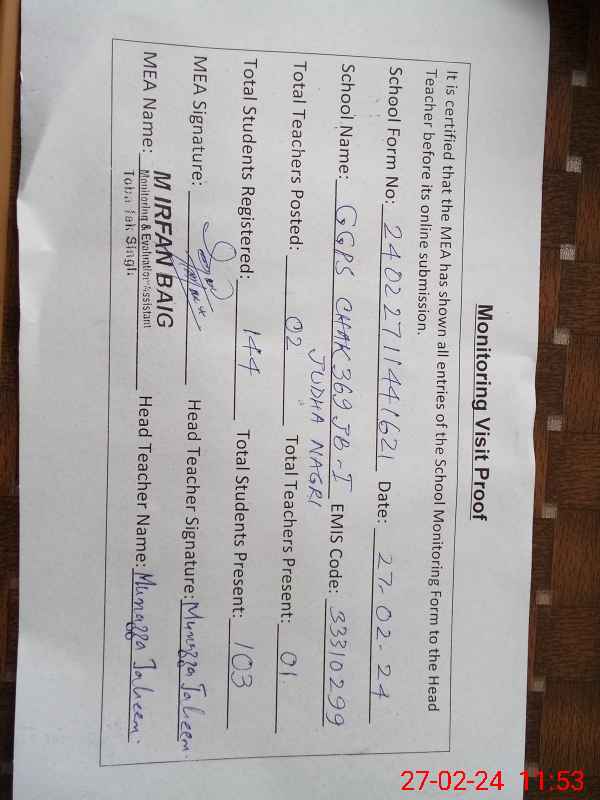 Monitoring Visit Proof
It is certified that the MEA has shown all entries of the School Monitoring Form to the Head
Teacher before its online submission.
School Form No: 24022711441621 Date: 27-02-24
School Name: GGPS CHAK 369 JB-I EMIS Code: 33310299
JODHA NAGRI
Total Teachers Posted: 02 Total Teachers Present: 01
Total Students Registered: 144 Total Students Present: 103
MEA Signature: Head Teacher Signature: Munazza Taheem.
MEA Name: M IRFAN BAIG Head Teacher Name: Munazza Taheem.
Monitoring & Evaluation Assistant
Toba Tek Singh
27-02-24 11:53